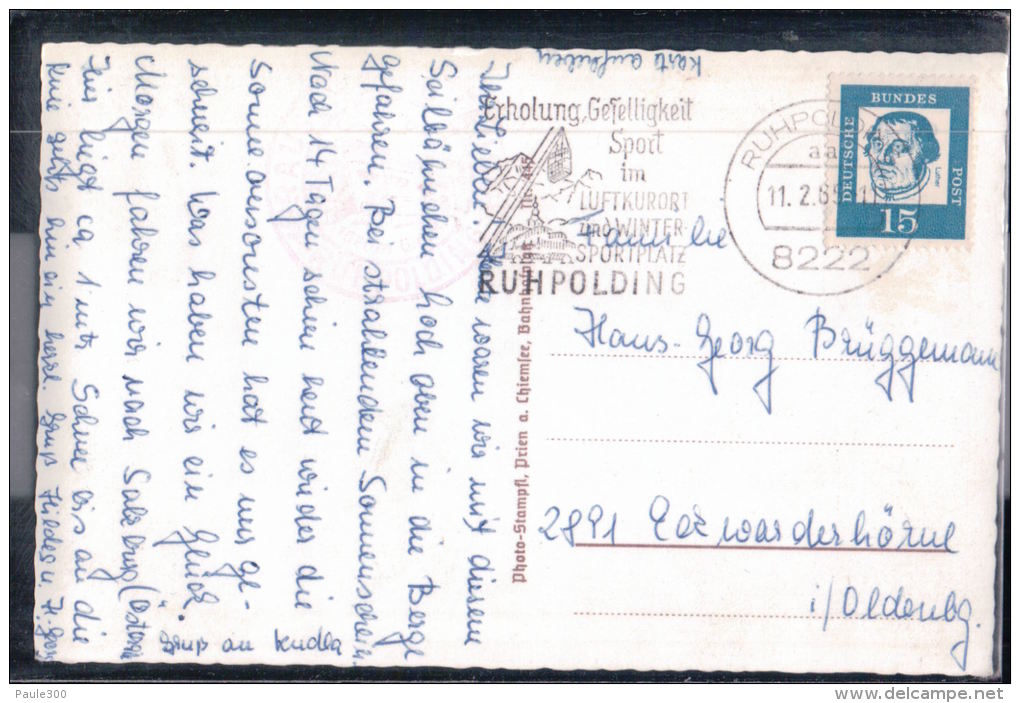 Karte aufheben
Ihr Lieben! Heute waren wir mit diesem
Seilbähnchen hoch oben in die Berge
gefahren. Bei strahlendem Sonnenschein.
Nach 14 Tagen schien heut wieder die
Sonne. ansonsten hat es nur ge-
schneit. Was haben wir ein Glück.
Morgen fahren wir nach Salzburg (Österr
Hier liegt ca 1 mtr Schnee bis an die
Knie geht's hin ein herzl. Gruß Hildeg. u. H-Georg
Gruß an Kinder
Erholung, Geselligkeit
Sport
im
LUFTKURORT
und WINTER-
SPORTPLATZ
RUHPOLDING
RUHPOLDING
aa
11. 2. 65
8222
DEUTSCHE
BUNDES
POST
Luther
15
Photo-Stampfl, Prien a. Chiemsee, Bahnhofstr.
Familie
Hans-Georg Brüggemann
2891 Eckwarderhörne
i/Oldenbg.
Paule300
www.delcampe.net